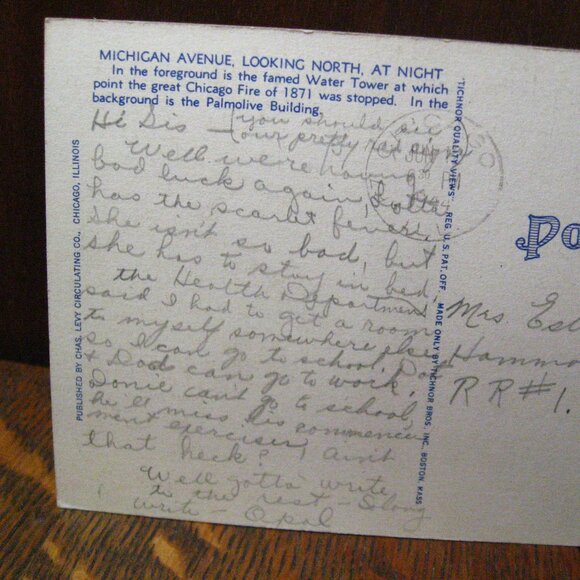 MICHIGAN AVENUE, LOOKING NORTH, AT NIGHT
In the foreground is the famed Water Tower at which
point the great Chicago Fire of 1871 was stopped. In the
background is the Palmolive Building.
Hi Sis – (you should see
our pretty red sign
Well we're having
bad luck again,
has the scarlet fever.
She isn't so bad, but
she has to stay in bed,
the Health Department
said I had to get a room
to myself somewhere else
so I can go to school,
& Dad can go to work,
Donie can't go to school,
he'll miss his commence
ment exercises, ain't
that heck?
Well gotta write
to the rest. So long
write – Opal
PUBLISHED BY CHAS. LEVY CIRCULATING CO., CHICAGO, ILLINOIS
"TICHNOR QUALITY VIEWS" REG. U.S. PAT. OFF. MADE ONLY BY TICHNOR BROS. INC., BOSTON, MASS
Po
Mrs Est
Hammo
RR#1.